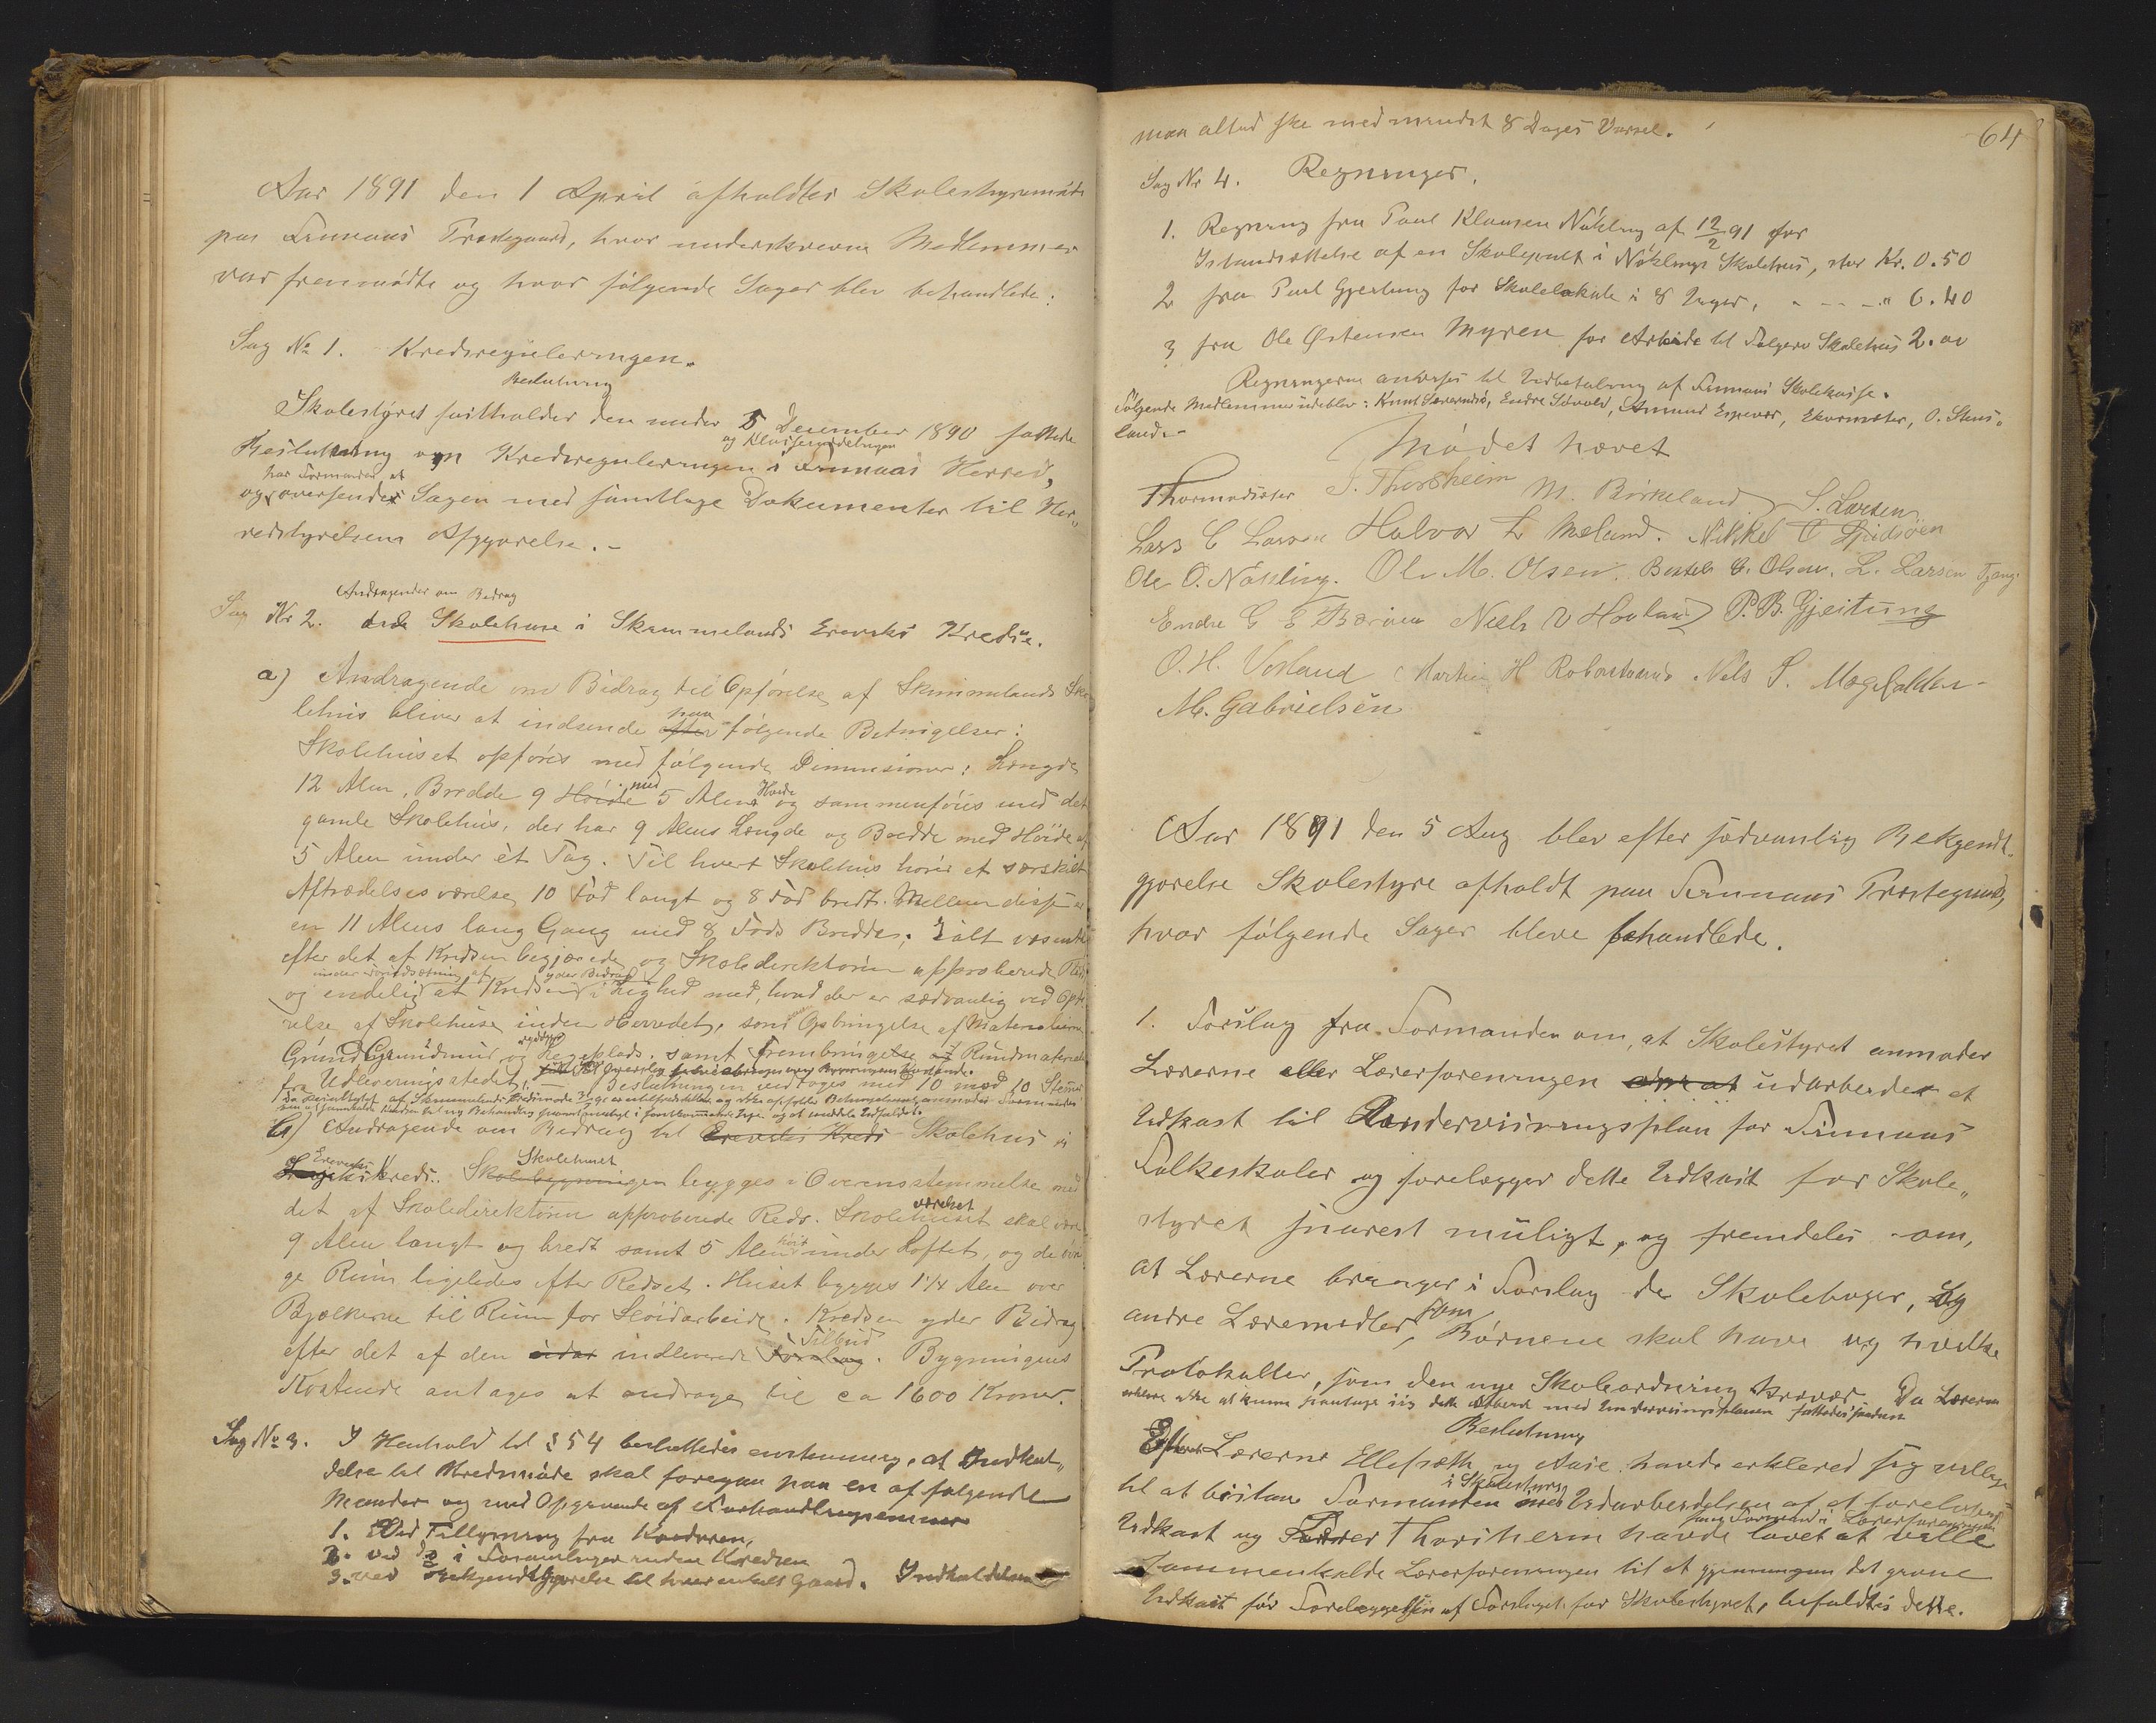 Aar 1891 den 1 April afholdtes Skolestyremøde
paa Finnaas Præstegaard, hvor underskrevne Medlemmer
var fremmødte og hvor følgende Sager blev behandlede:
Sag No 1. Kredsreguleringen.
Beslutning
Skolestyret fastholder den under 5 December 1890 fattede
og Klasseinddelingen
Beslutning om Kredsreguleringen i Finnaas Herred,
har Formanden at
og oversende Sagen med samtlige Dokumenter til Her„
redstyrelsens Afgjørelse. -
Andragender om Bidrag
Sag Nr 2. Skolehuse i Skimmelands Erevekis Kredse.
a) Andragende om Bidrag til Opførelse af Skimmelands Sko
lehus bliver at indsende efter paa følgende Betingelser:
Skolehuset opføres med følgende Dimensioner: Længde
12 Alen, Bredde 9 Høide med 5 Alens Høide og sammenføies med det
gamle Skolehus, der har 9 Alens Længde og Bredde med Høide af
5 Alen under ét Tag. Til hvert Skolehus hører et særskilt
Aftrædelsesværelse 10 Fod langt og 8 Fod bredt. Mellem disse er
en 11 Alens lang Gang med 8 Fods Bredde; Ialt væsentlig
efter det af Kredsen begjærede og Skoledirektøren approberede Rids
under Forudsætning af yder Bidrag
og endelig at Kredsen i Lighed med, hvad der er sædvanlig ved Opfø
relse af Skolehuse inden Herredet, som Opbringelse af Materialierne
Grund Grundmur og ryddet Legeplads. samt Frembringelse af Rundmaterialer
fra Udleveringsstedet. - Beslutningen vedtoges med 10 mod 10 Stemmer
b) Andragende om Bidrag til Erevekis Kreds Skolehus i
Erevekis Kreds. Skolebygningen Skolehuset bygges i Overensstemmelse med
det af Skoledirektøren approberede Rids. Skolehuset værelset skal være
9 Alen langt og bredt samt 5 Alen høit under Loftet, og de øvri
ge Rum ligeledes efter Ridset. Huset bygges 1¼ Alen over
Bjælkerne til Rum for Sløidarbeide. Kredsen yder Bidrag
efter det af den indleverede Forslag Tilbud. Bygningens
Kostende antages at andrage til ca 1600 Kroner.
Sag No 3. I Henhold til § 54 besluttedes enstemmig, at Indkal„
delse til Kredsmøde skal foregaa paa en af følgende
Maader og med Opgivende af Forhandlingsemner
1. Ved Tillysning fra Kordøren,
2. ved do i Forsamlinger inden Kredsen
3. ved Bekjendtgjørelse til hver enkelt Gaard. Indkaldelsen
maa altid ske med mindst 8 Dages Varsel.
64
Sag Nr 4. Regninger.
1. Regning fra Paul Klausen Nøkling af 12/2 91 for
Istandsættelse af en Skolepult i Nøklings Skolehus, stor Kr. 0.50
2 fra Paul Gjeitung for Skolelokale i 8 Uger, - - - " 6.40
3 fra Ole Østensen Myren for Arbeide til Følgerø Skolehus 2.00
Regningerne anvises til Udbetaling af Finnaas Skolekasse.
Følgende Medlemmer udeblev: Knut Sæverudsø, Endre Søvold, Amund Espevær, O. Stens„
land. -
Mødet hævet
Thormodsæter J. Thorsheim M. Birkeland S. Larsen
Lars C Larsen Halvor L Mæland. Nikkel T
Ole O. Nøkling. Ole M. Olsen. Bertel G. Olsen. L. Larsen
Endre G E Bærøen Niels O Hovland P. B. Gjeitung
O. H. Vorland Martin H Nels S.
M. Gabrielsen
Aar 1891 den 5 Aug blev efter sædvanlig Bekjendt„
gjørelse Skolestyre afholdt paa Finnaas Præstegaard,
hvor følgende Sager bleve behandlede.
1. Forslag fra Formanden om, at Skolestyret anmoder
Lærerne eller Lærerforeningen udarbeide et
Udkast til Undervisningsplan for Finnaas
Folkeskoler og forelægger dette Udkast for Skole„
styret snarest muligt, og fremdeles om,
at Lærerne bringer i Forslag de Skolebøger, og
andre Læremidler, som Børnene skal have og hvilke
Protokoller, som den nye Skoleordning kræver. Da Lærerne
erklære ikke at kunne paatage sig dette Arbeide med Undervisningsplanen fattedes saadan
Beslutning
Efterat Lærerne Ellefsæth og Aase havde erklæret sig villige
i Skolestyret
til at bistaa Formanden med Udarbeidelsen af et foreløbigt
som Formand i Lærerforeningen
Udkast og Lærer Thorsheim havde lovet at ville
sammenkalde Lærerforeningen til at gjennemgaa det givne
Udkast før Forelæggelsen af Forslaget for Skolestyret, besluttes dette.